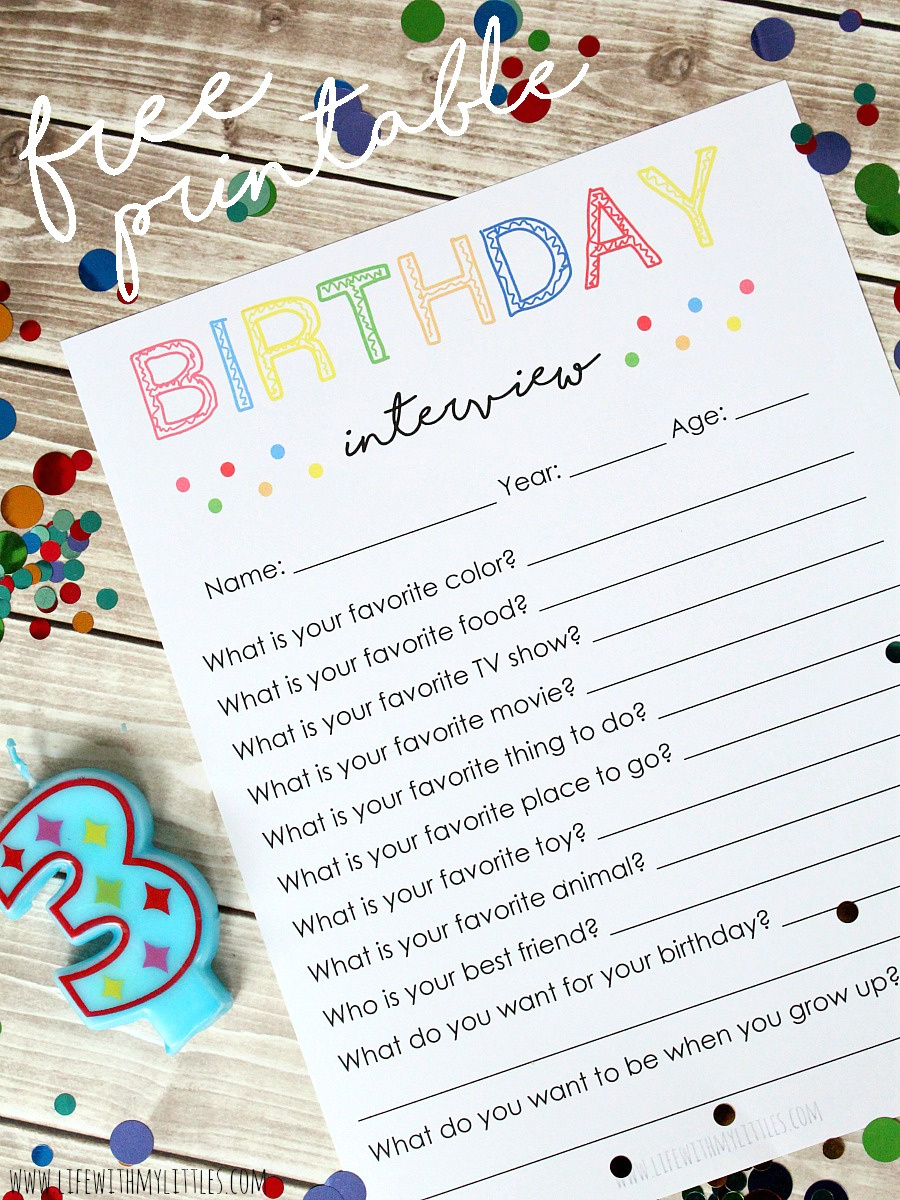 free
printable
BIRTHDAY
interview
Name: Year: Age:
What is your favorite color?
What is your favorite food?
What is your favorite TV show?
What is your favorite movie?
What is your favorite thing to do?
What is your favorite place to go?
What is your favorite toy?
What is your favorite animal?
Who is your best friend?
What do you want for your birthday?
What do you want to be when you grow up?
WWW.LIFEWITHMYLITTLES.COM
WWW.LIFEWITHMYLITTLES.COM